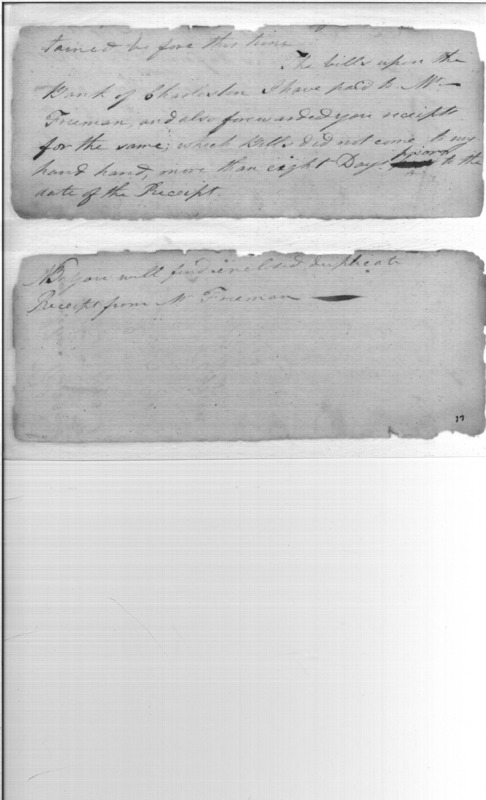 tained before this time
The bills upon the
Bank of Charleston I have paid to Mr
Freeman, and also forewarded you receipts
for the same; which Bills did not come to my
hand hand, more than eight Days previous to the
date of the Receipt.
NB you will find inclosed duplicate
Receipt from Mr Freeman
17